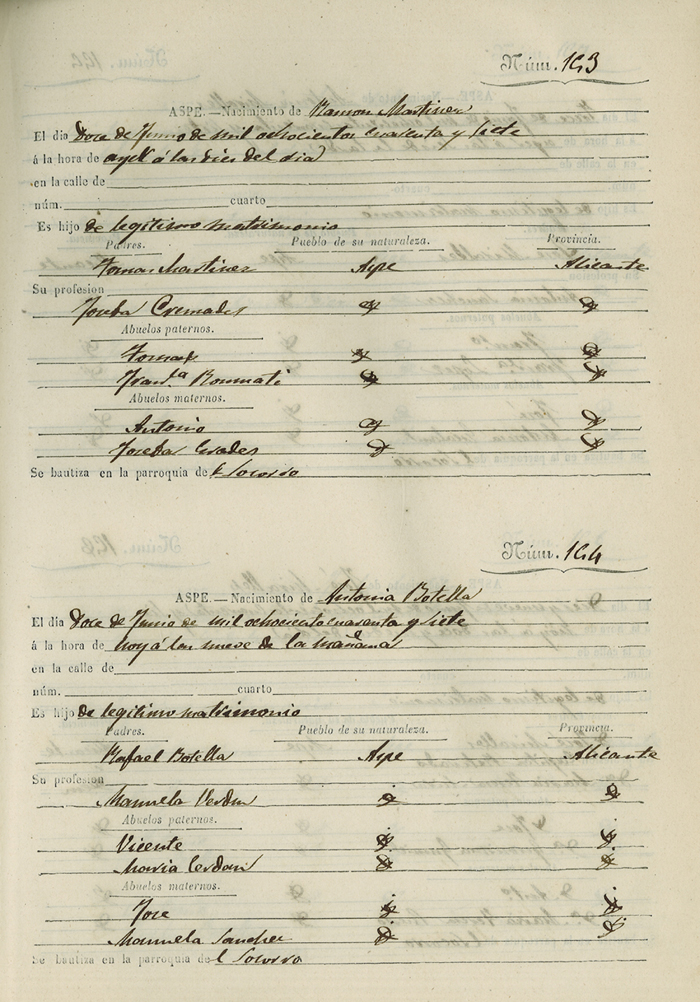 Núm. 153
ASPE.—Nacimiento de Ramon Martinez
El dia Doce de Junio de mil ochocientos cuarenta y siete
á la hora de ayer á las dies del dia
en la calle de
núm. cuarto
Es hijo de legitimo matrimonio
Padres. Pueblo de su naturaleza. Provincia.
Tomas Martinez Aspe Alicante
Su profesion
Josefa Cremades
Abuelos paternos.
Tomas
Abuelos maternos.
Antonio
Josefa
Se bautiza en la parroquia de l Socorro
Núm. 154
ASPE.—Nacimiento de Antonia Botella
El dia Doce de Junio de mil ochociento cuarenta y siete
á la hora de hoy á las nueve de la mañana
en la calle de
núm. cuarto
Es hijo de legitimo matrimonio
Padres. Pueblo de su naturaleza. Provincia.
Rafael Botella Aspe Alicante
Su profesion
Manuela Cerdan
Abuelos paternos.
Vicente
Maria Cerdan
Abuelos maternos.
Jose
Manuela Sanchez
Se bautiza en la parroquia de l Socorro